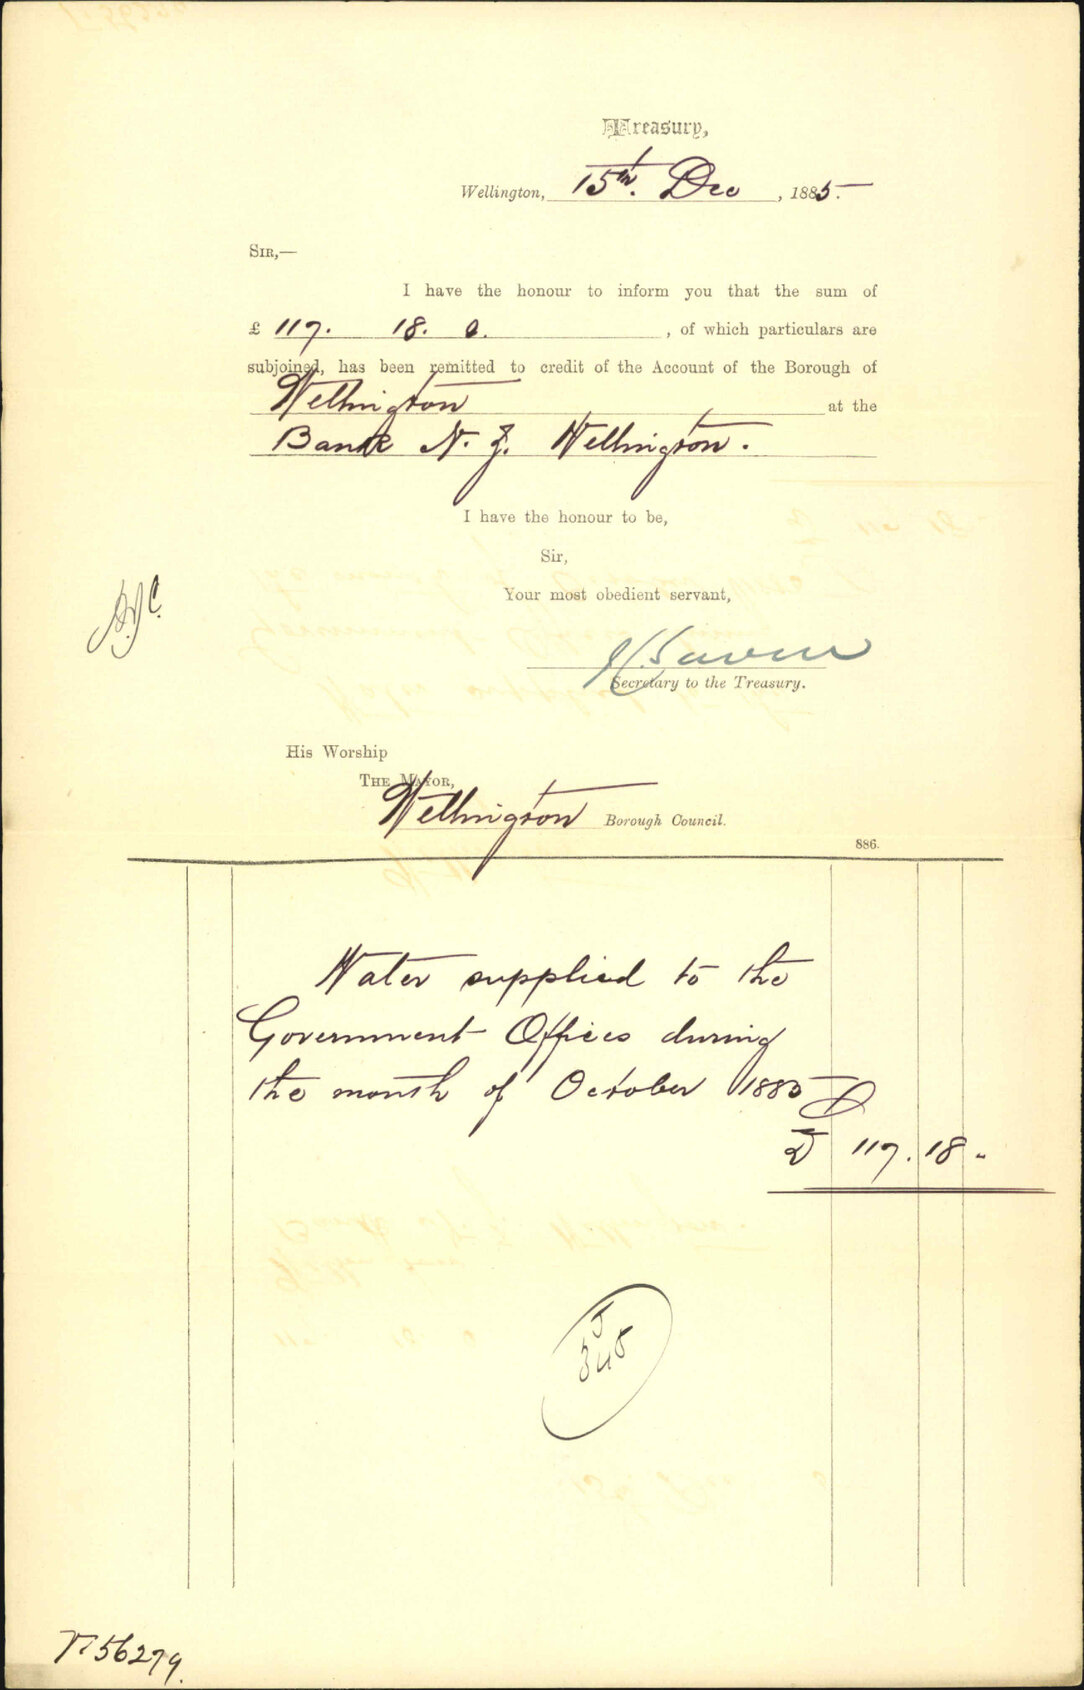 Treasury,
Wellington, 15th. Dec, 1885.
SIR,—
I have the honour to inform you that the sum of
£ 117. 18. 0., of which particulars are
subjoined, has been remitted to credit of the Account of the Borough of
Wellington at the
Bank N. Z. Wellington.
I have the honour to be,
Sir,
Your most obedient servant,
Secretary to the Treasury.
His Worship
THE MAYOR,
Wellington Borough Council.
886.
Water supplied to the
Government Offices during
the month of October 1885
£ 117. 18 "
56279.